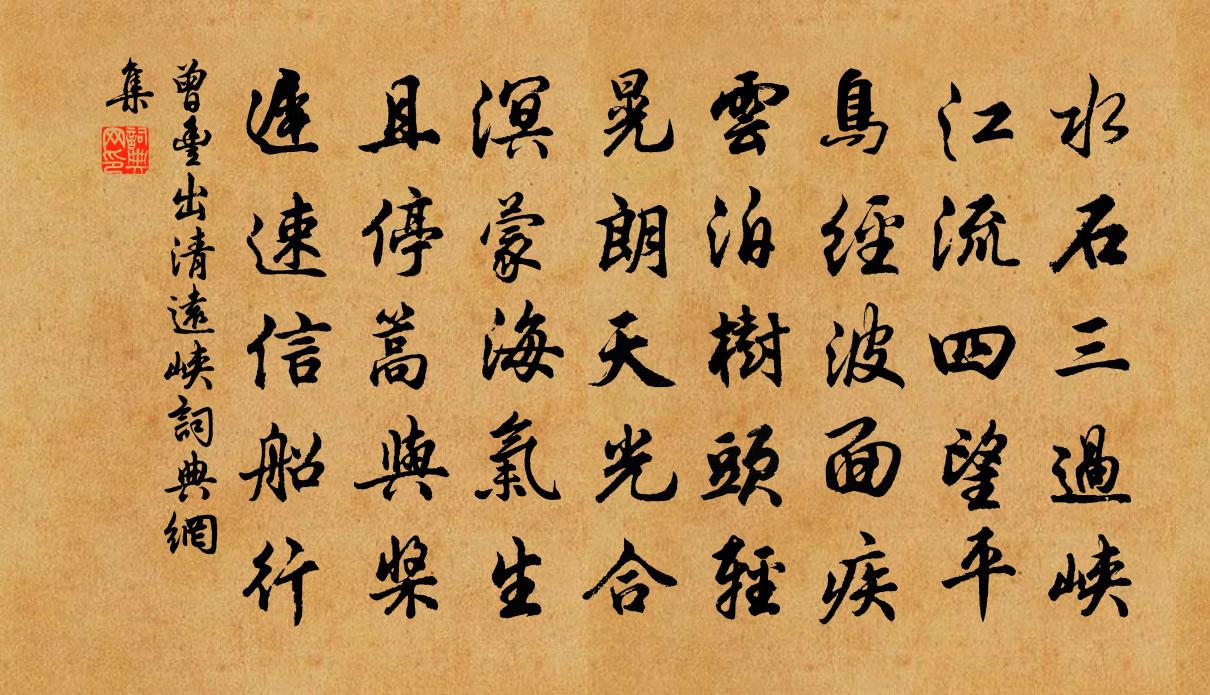 水石三過峽
江流四望平
鳥經波面疾
雲泊樹頭輕
晃朗天光合
溟蒙海氣生
且停蒿與槳
遲速信船行
曾豐出清遠峽詞典網
集
詞典
网印